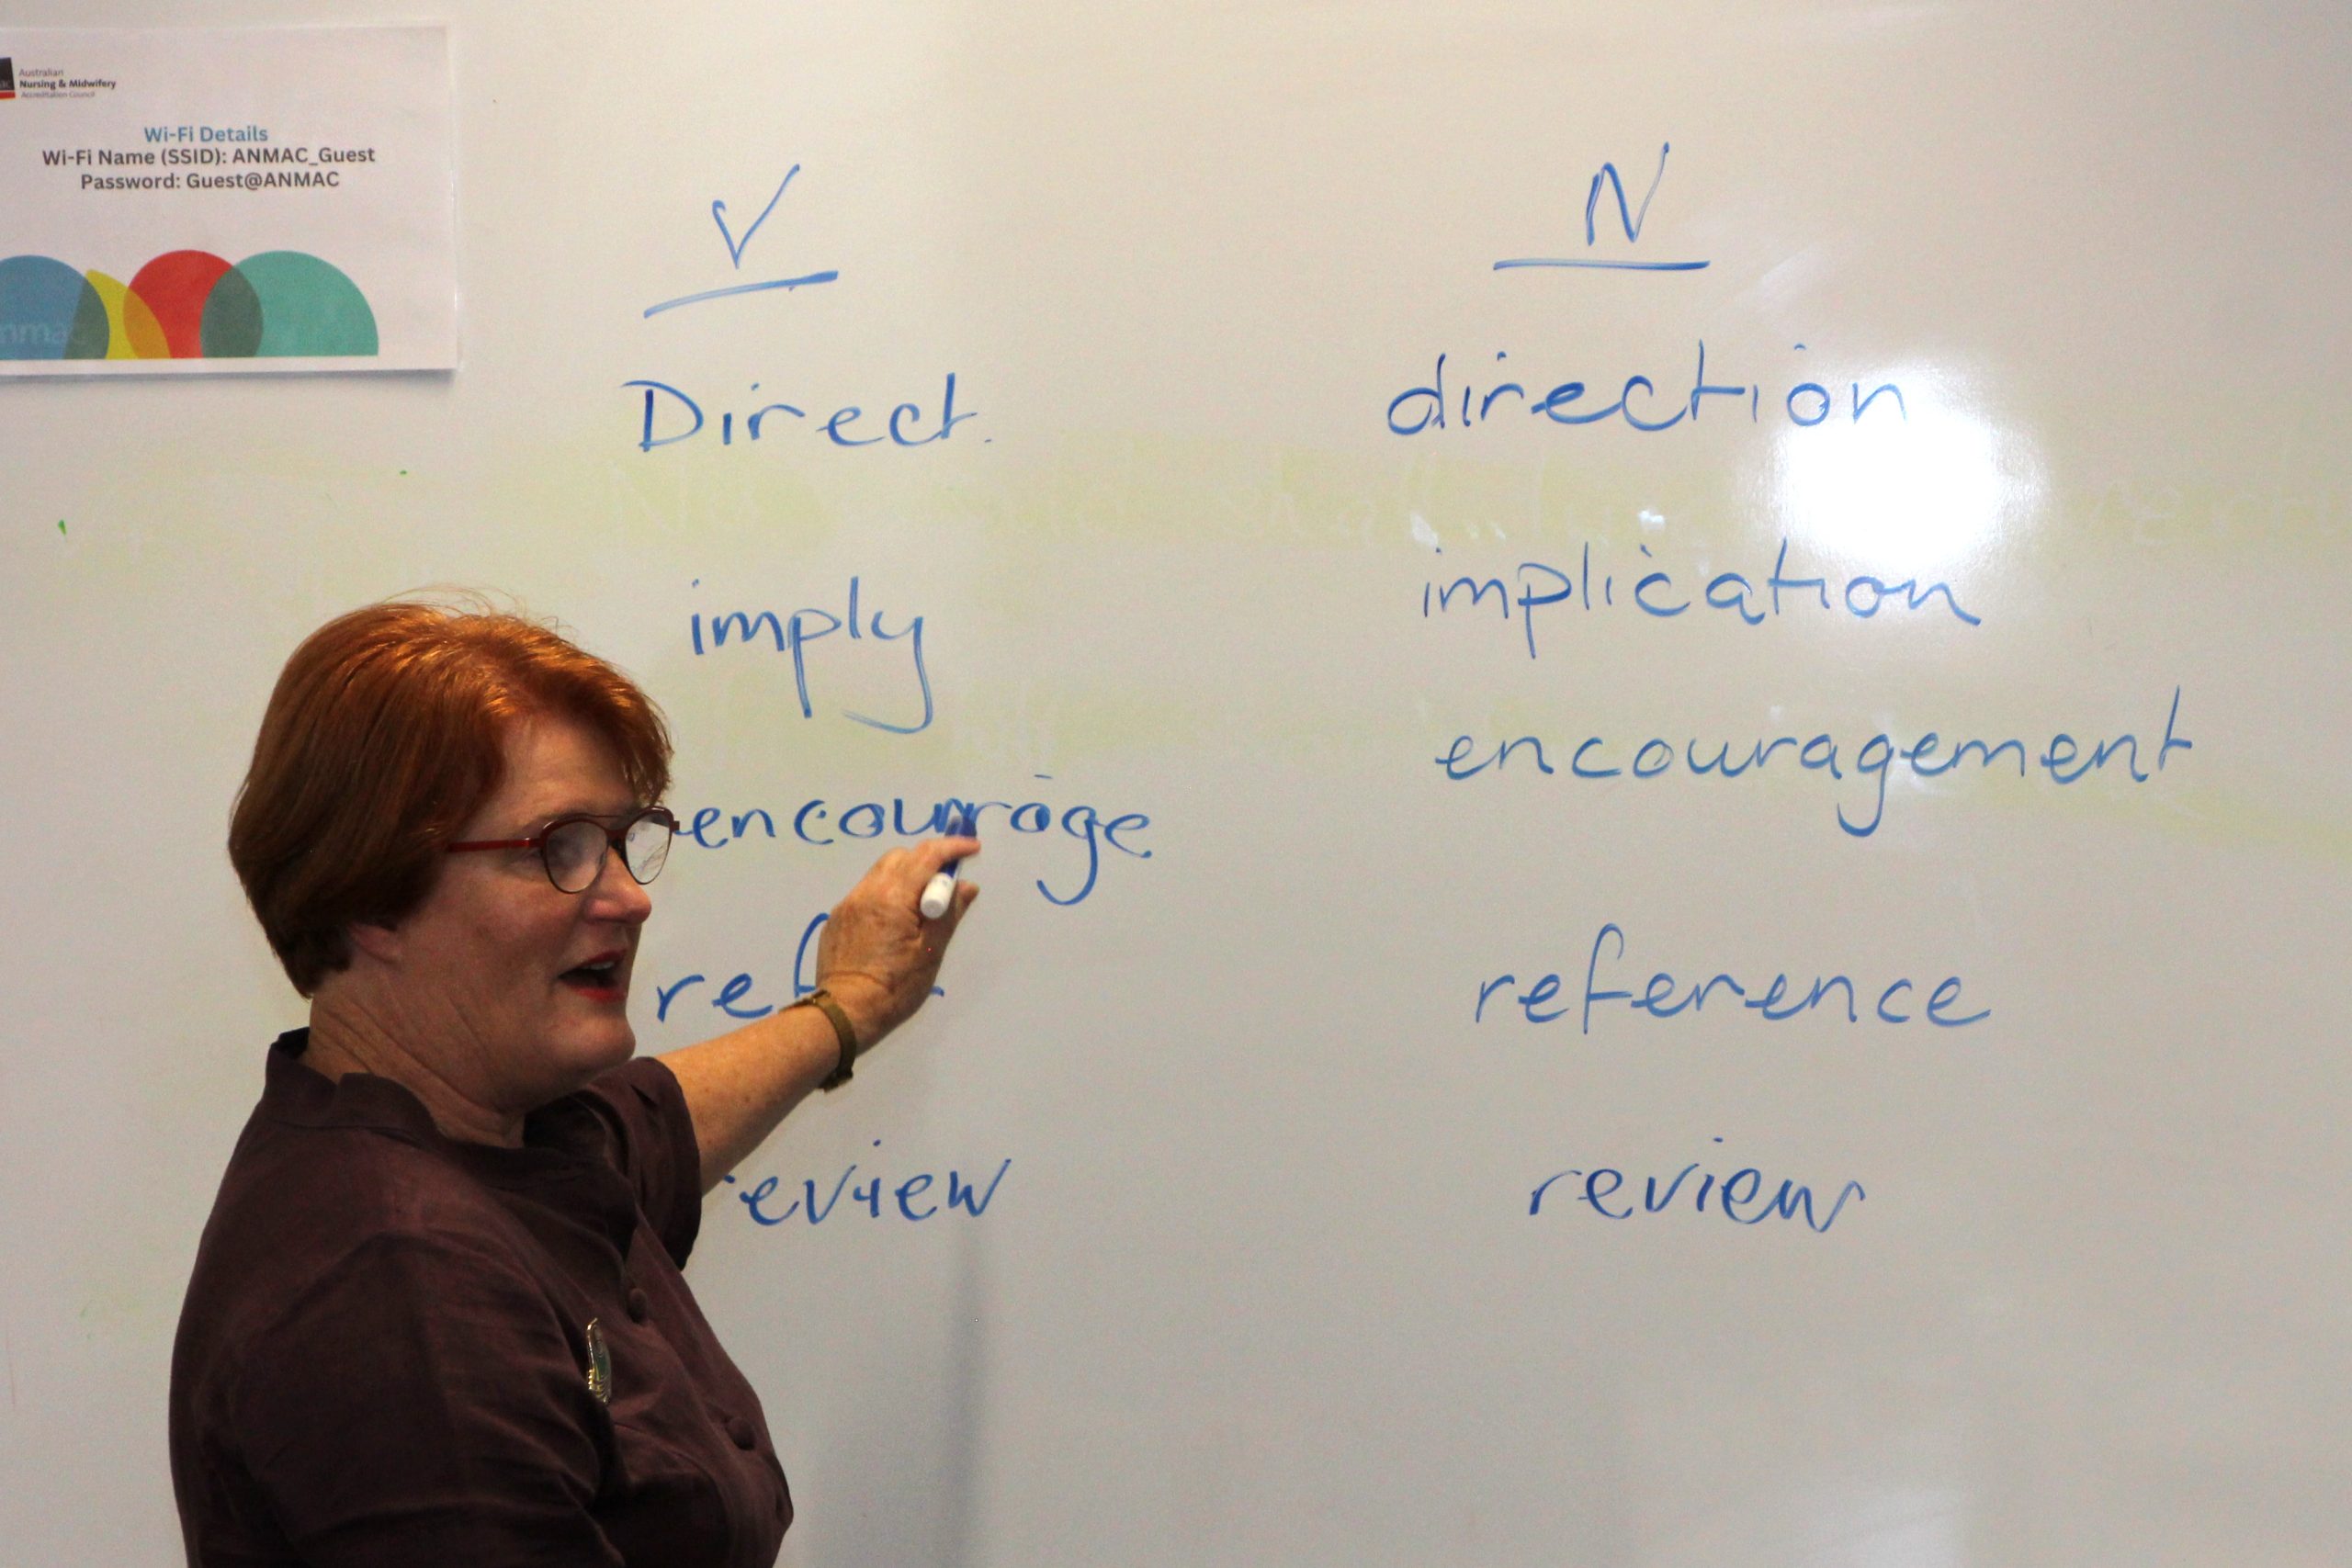 Australian
Nursing & Midwifery
Accreditation Council
Wi-Fi Details
Wi-Fi Name (SSID): ANMAC_Guest
Password: Guest@ANMAC
nmac
V N
Direct. direction
imply implication
encourage encouragement
reference
review review